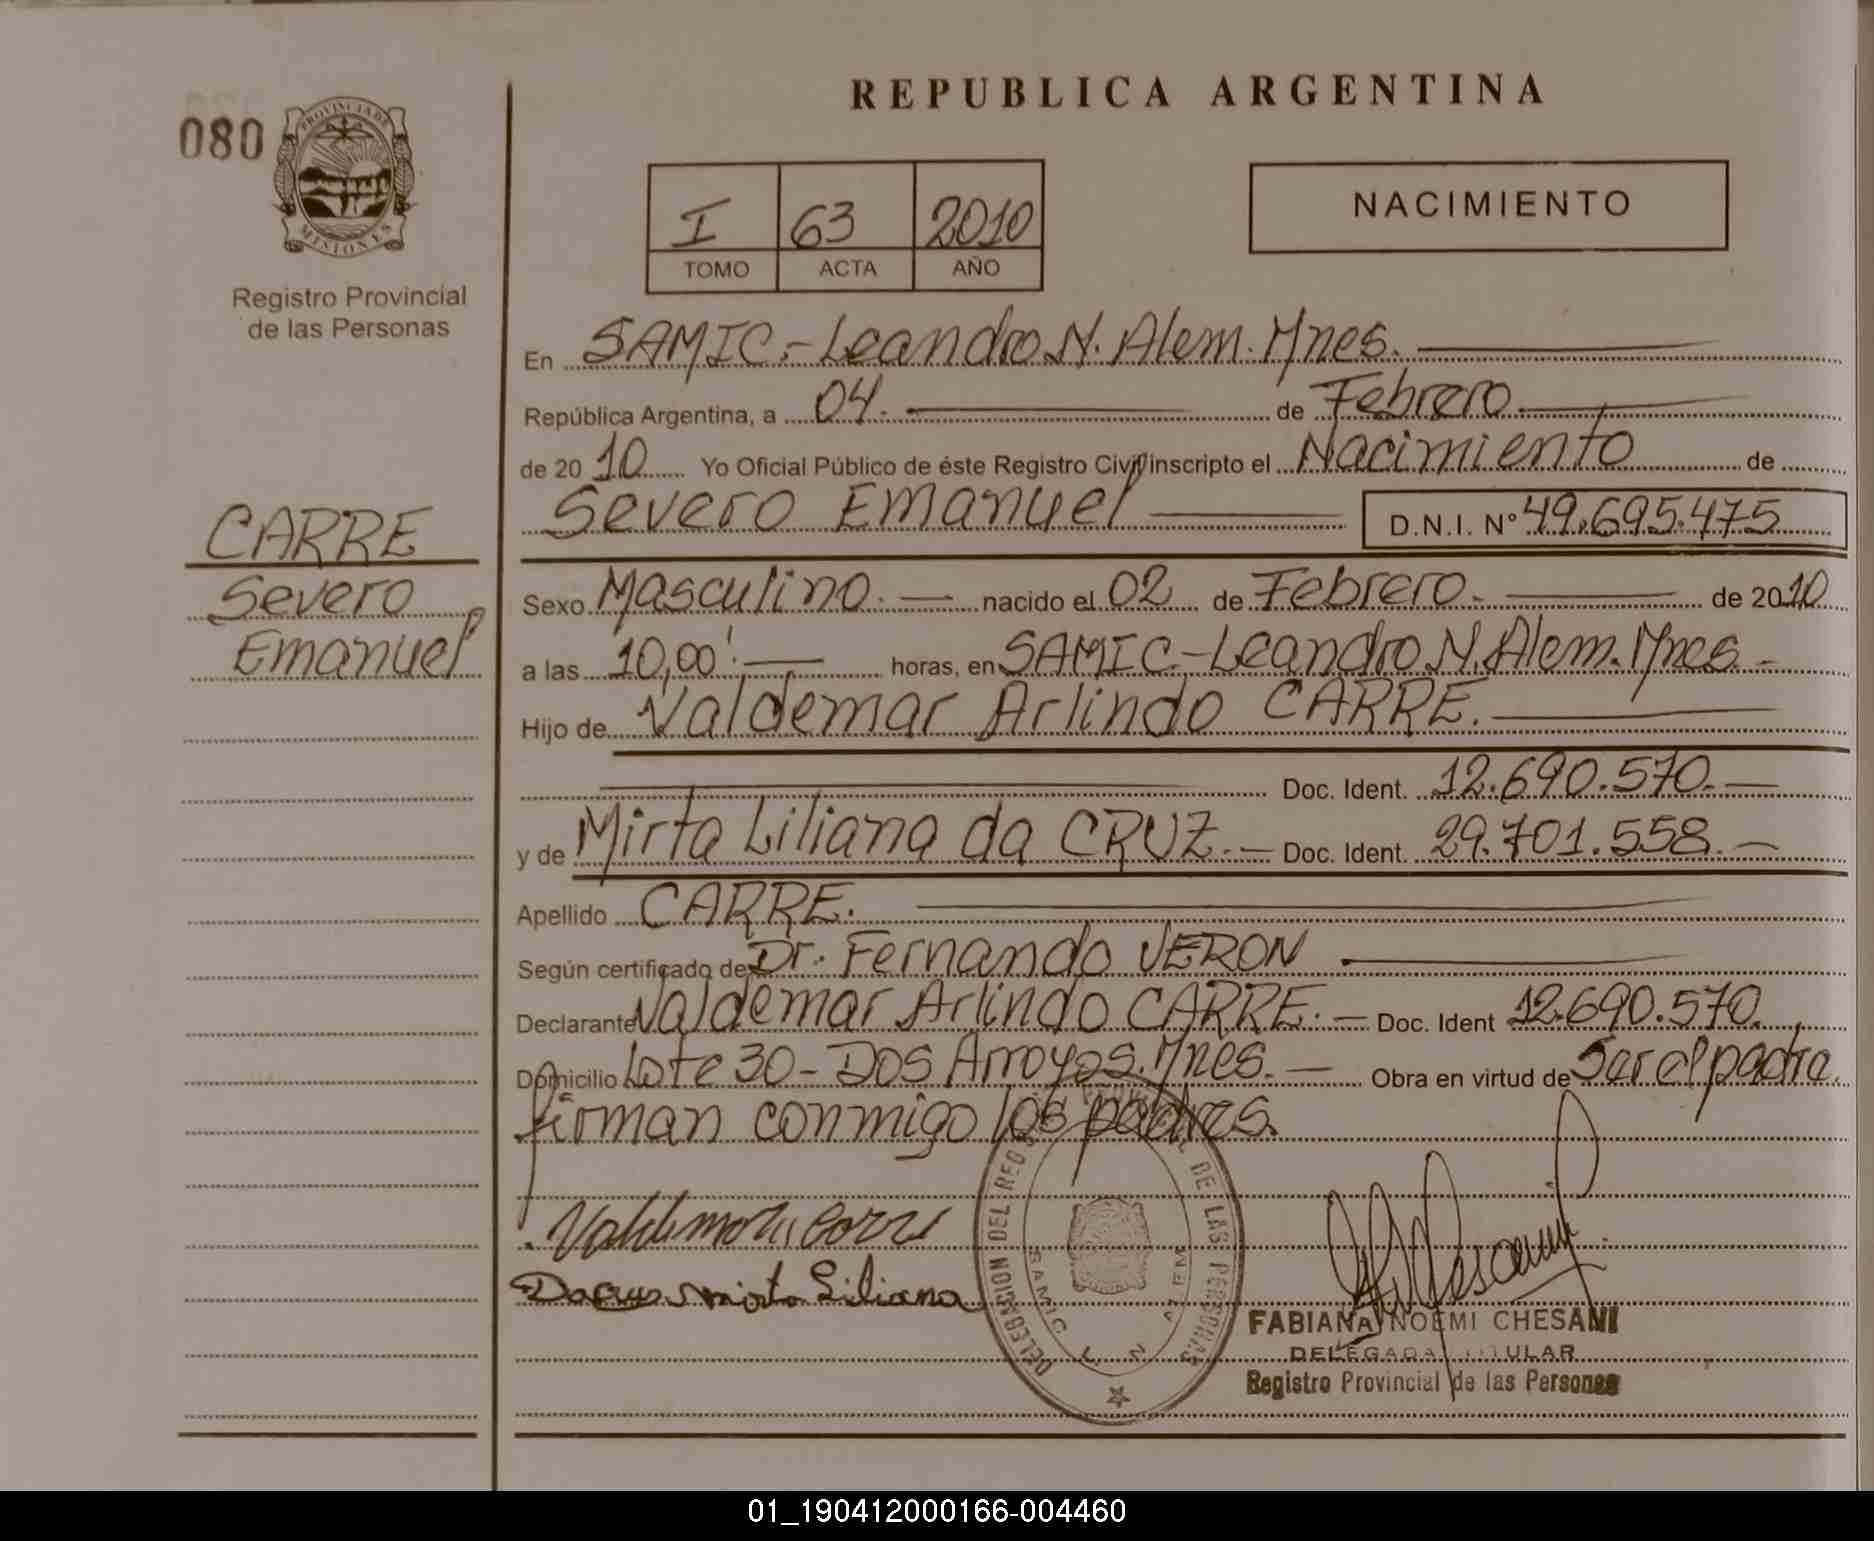 REPUBLICA ARGENTINA
080
PROVINCIA DE
MISIONES
Registro Provincial
de las Personas
I 63 2010
TOMO ACTA AÑO
NACIMIENTO
En SAMIC.-Leandro N. Alem. Mnes.
República Argentina, a 04. de Febrero
de 2010 Yo Oficial Público de éste Registro Civil inscripto el Nacimiento de
Severo Emanuel D.N.I. N° 49.695.475
CARRE
Severo
Emanuel
Sexo Masculino. nacido el 02 de Febrero. de 2010
a las 10,00'. horas, en SAMIC.-Leandro N. Alem. Mnes.
Hijo de Valdemar Arlindo CARRE.
Doc. Ident. 12.690.570.
y de Mirta Liliana da CRUZ. Doc. Ident. 29.701.558.
Apellido CARRE.
Según certificado de Dr. Fernando VERON
Declarante Valdemar Arlindo CARRE. Doc. Ident 12.690.570.
Domicilio Lote 30-Dos Arroyos. Mnes. Obra en virtud de Ser el padre.
firman conmigo los padres.
DELEGACION DEL REG DE LAS PERSONAS
SAMIC L. N. ALEM
Mirta Liliana
FABIANA NOEMI CHESANI
DELEGADA TITULAR
Registro Provincial de las Personas
01_190412000166-004460